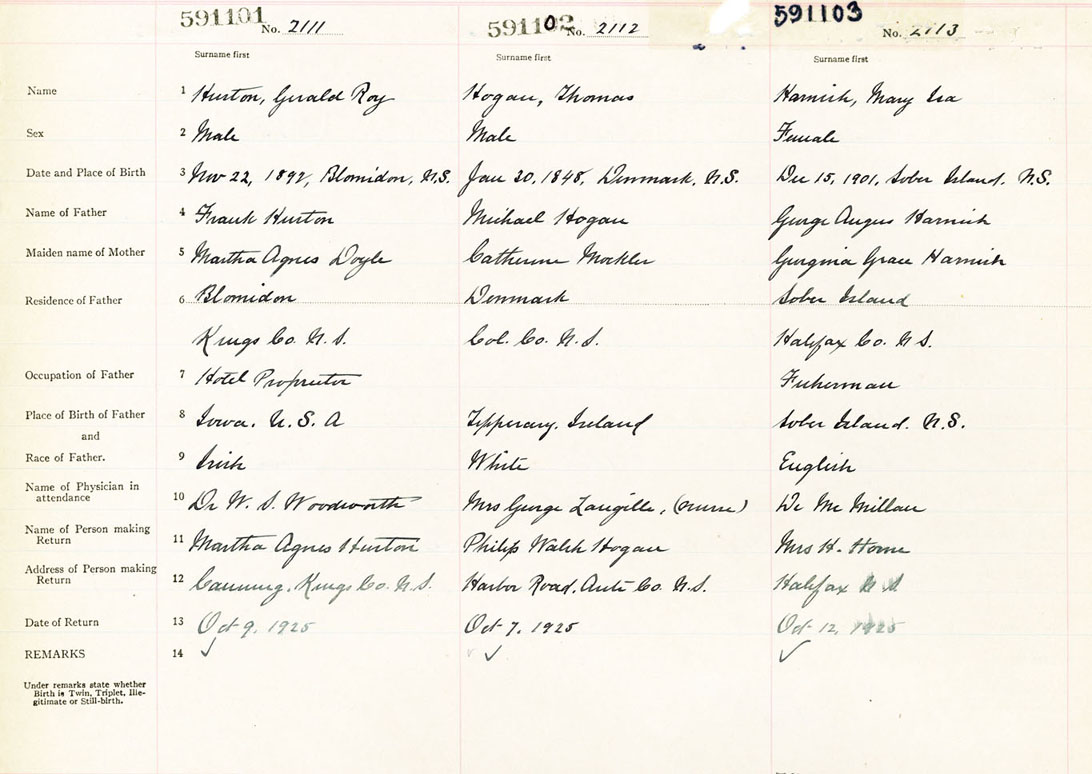 591101 No. 2111 591102 No. 2112 591103 No. 2113
Surname first Surname first Surname first
Name 1 Huston, Gerald Roy Hogan, Thomas Harnish, Mary Isa
Sex 2 Male Male Female
Date and Place of Birth 3 Nov 22, 1892, Blomidon, N.S. Jan 20, 1848, Denmark, N.S. Dec 15, 1901, Sober Island, N.S.
Name of Father 4 Frank Huston Michael Hogan George Angus Harnish
Maiden name of Mother 5 Martha Agnes Doyle Catherine Mockler Georgina Grace Harnish
Residence of Father 6 Blomidon Denmark Sober Island
Kings Co. N.S. Col. Co. N.S. Halifax Co. N S.
Occupation of Father 7 Hotel Proprietor Fisherman
Place of Birth of Father 8 Iowa. U.S.A Tipperary. Ireland Sober Island. N.S.
and
Race of Father. 9 Irish White English
Name of Physician in
attendance 10 Dr W. S. Woodworth Mrs George Langille, (nurse) Dr Mc Millan
Name of Person making
Return 11 Martha Agnes Huston Philip Walsh Hogan Mrs H. Horne
Address of Person making
Return 12 Canning, Kings Co. N.S. Harbor Road, Anti Co. N.S. Halifax N S
Date of Return 13 Oct 9, 1925 Oct 7, 1925 Oct 12, 1925
REMARKS 14 ✓ ✓ ✓
Under remarks state whether
Birth is Twin, Triplet, Ille-
gitimate or Still-birth.